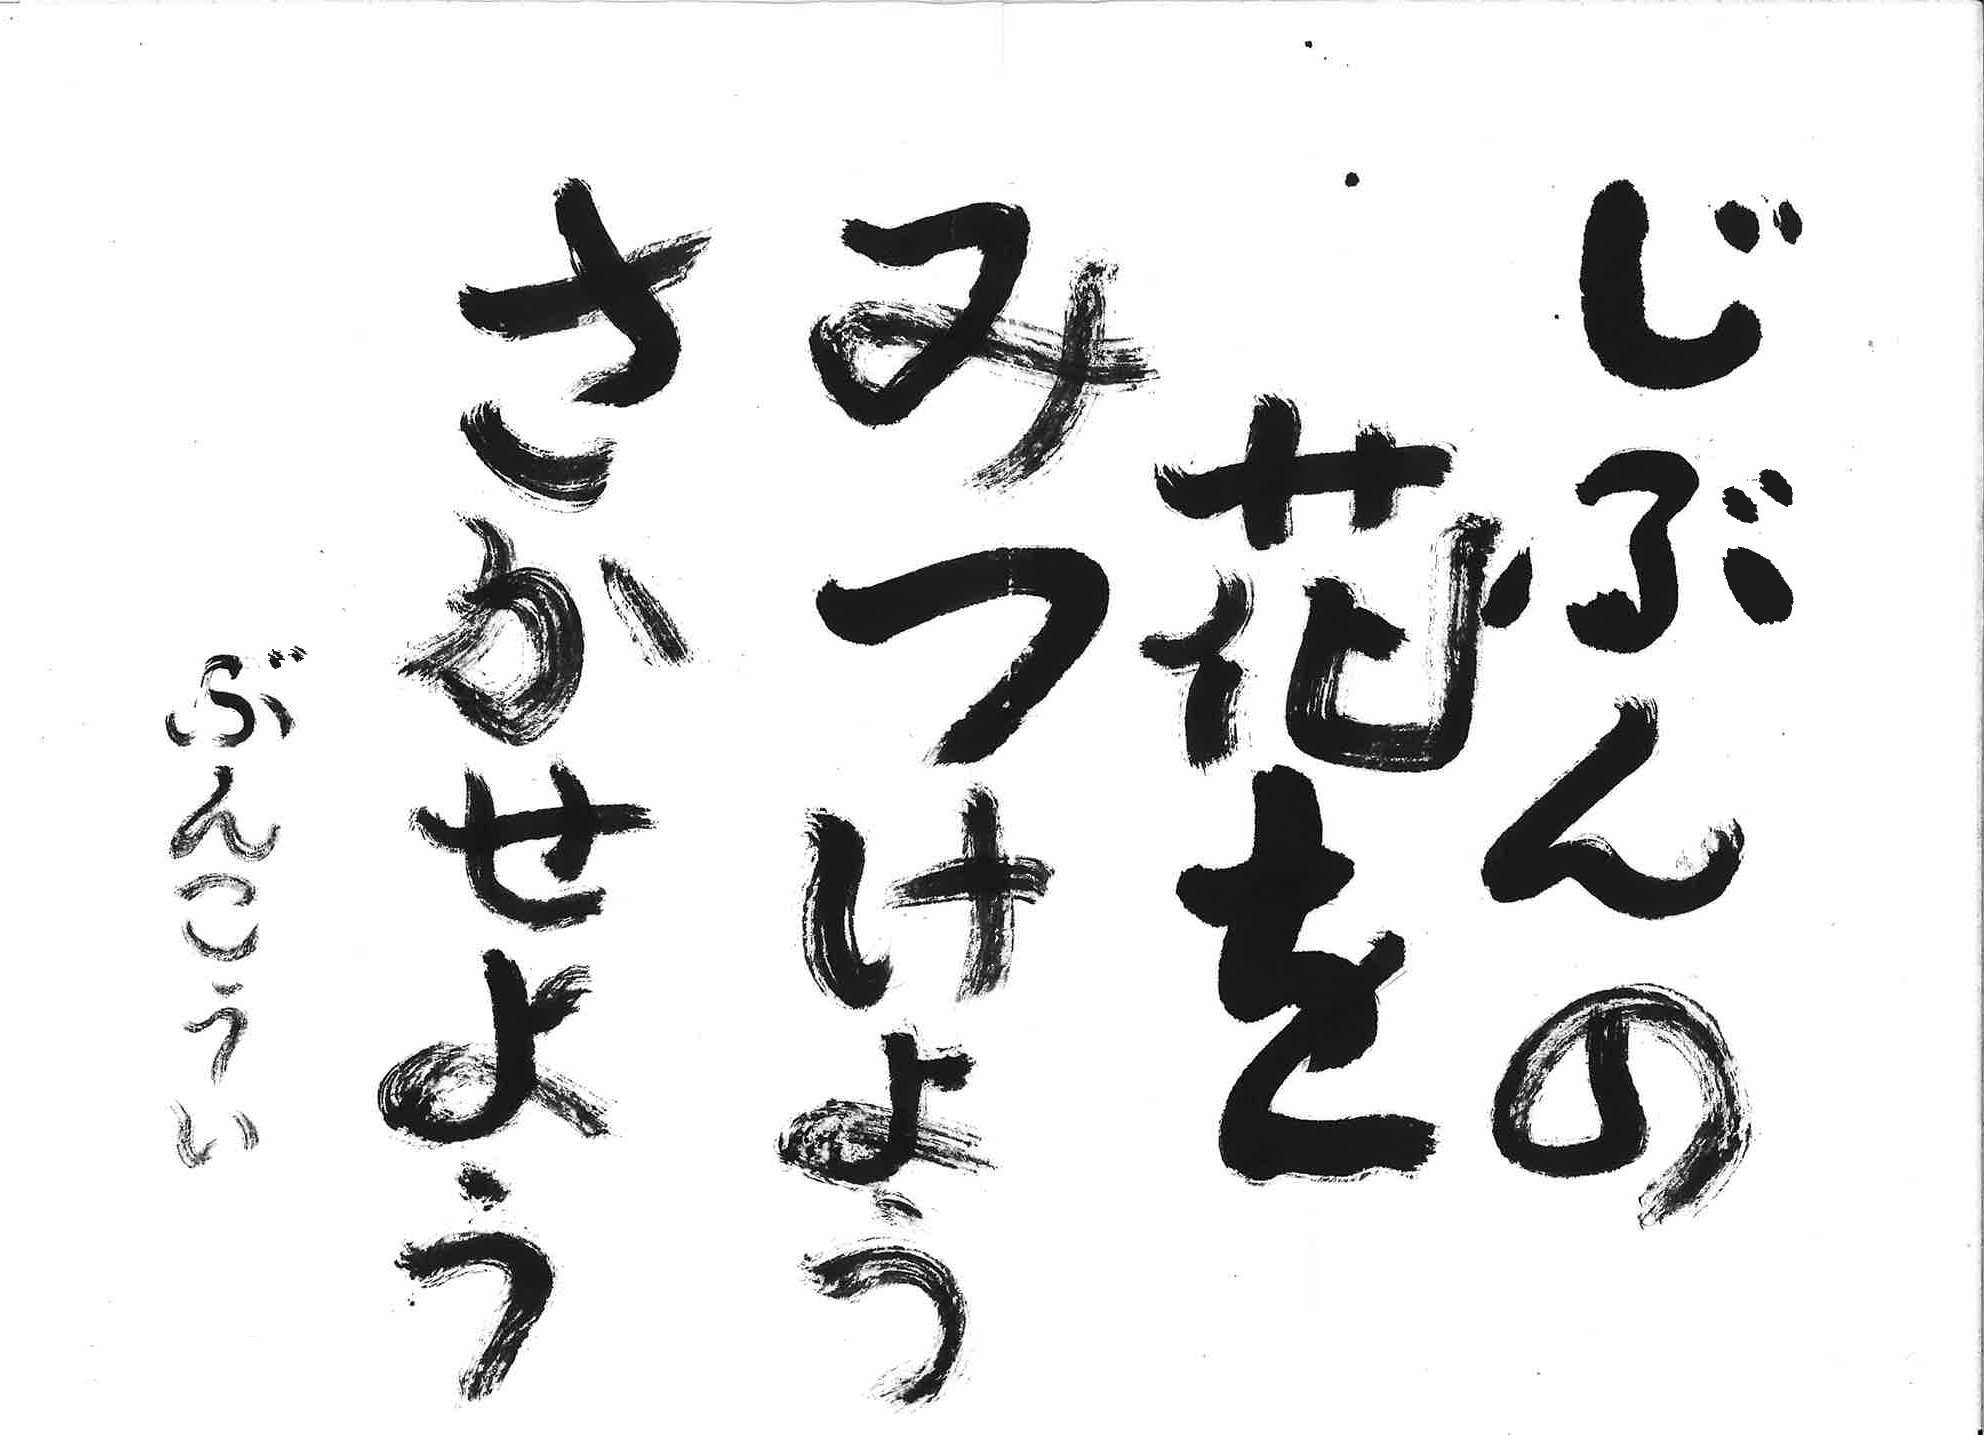 じぶんの
花を
みつけよう
さかせよう
ぶんこうい